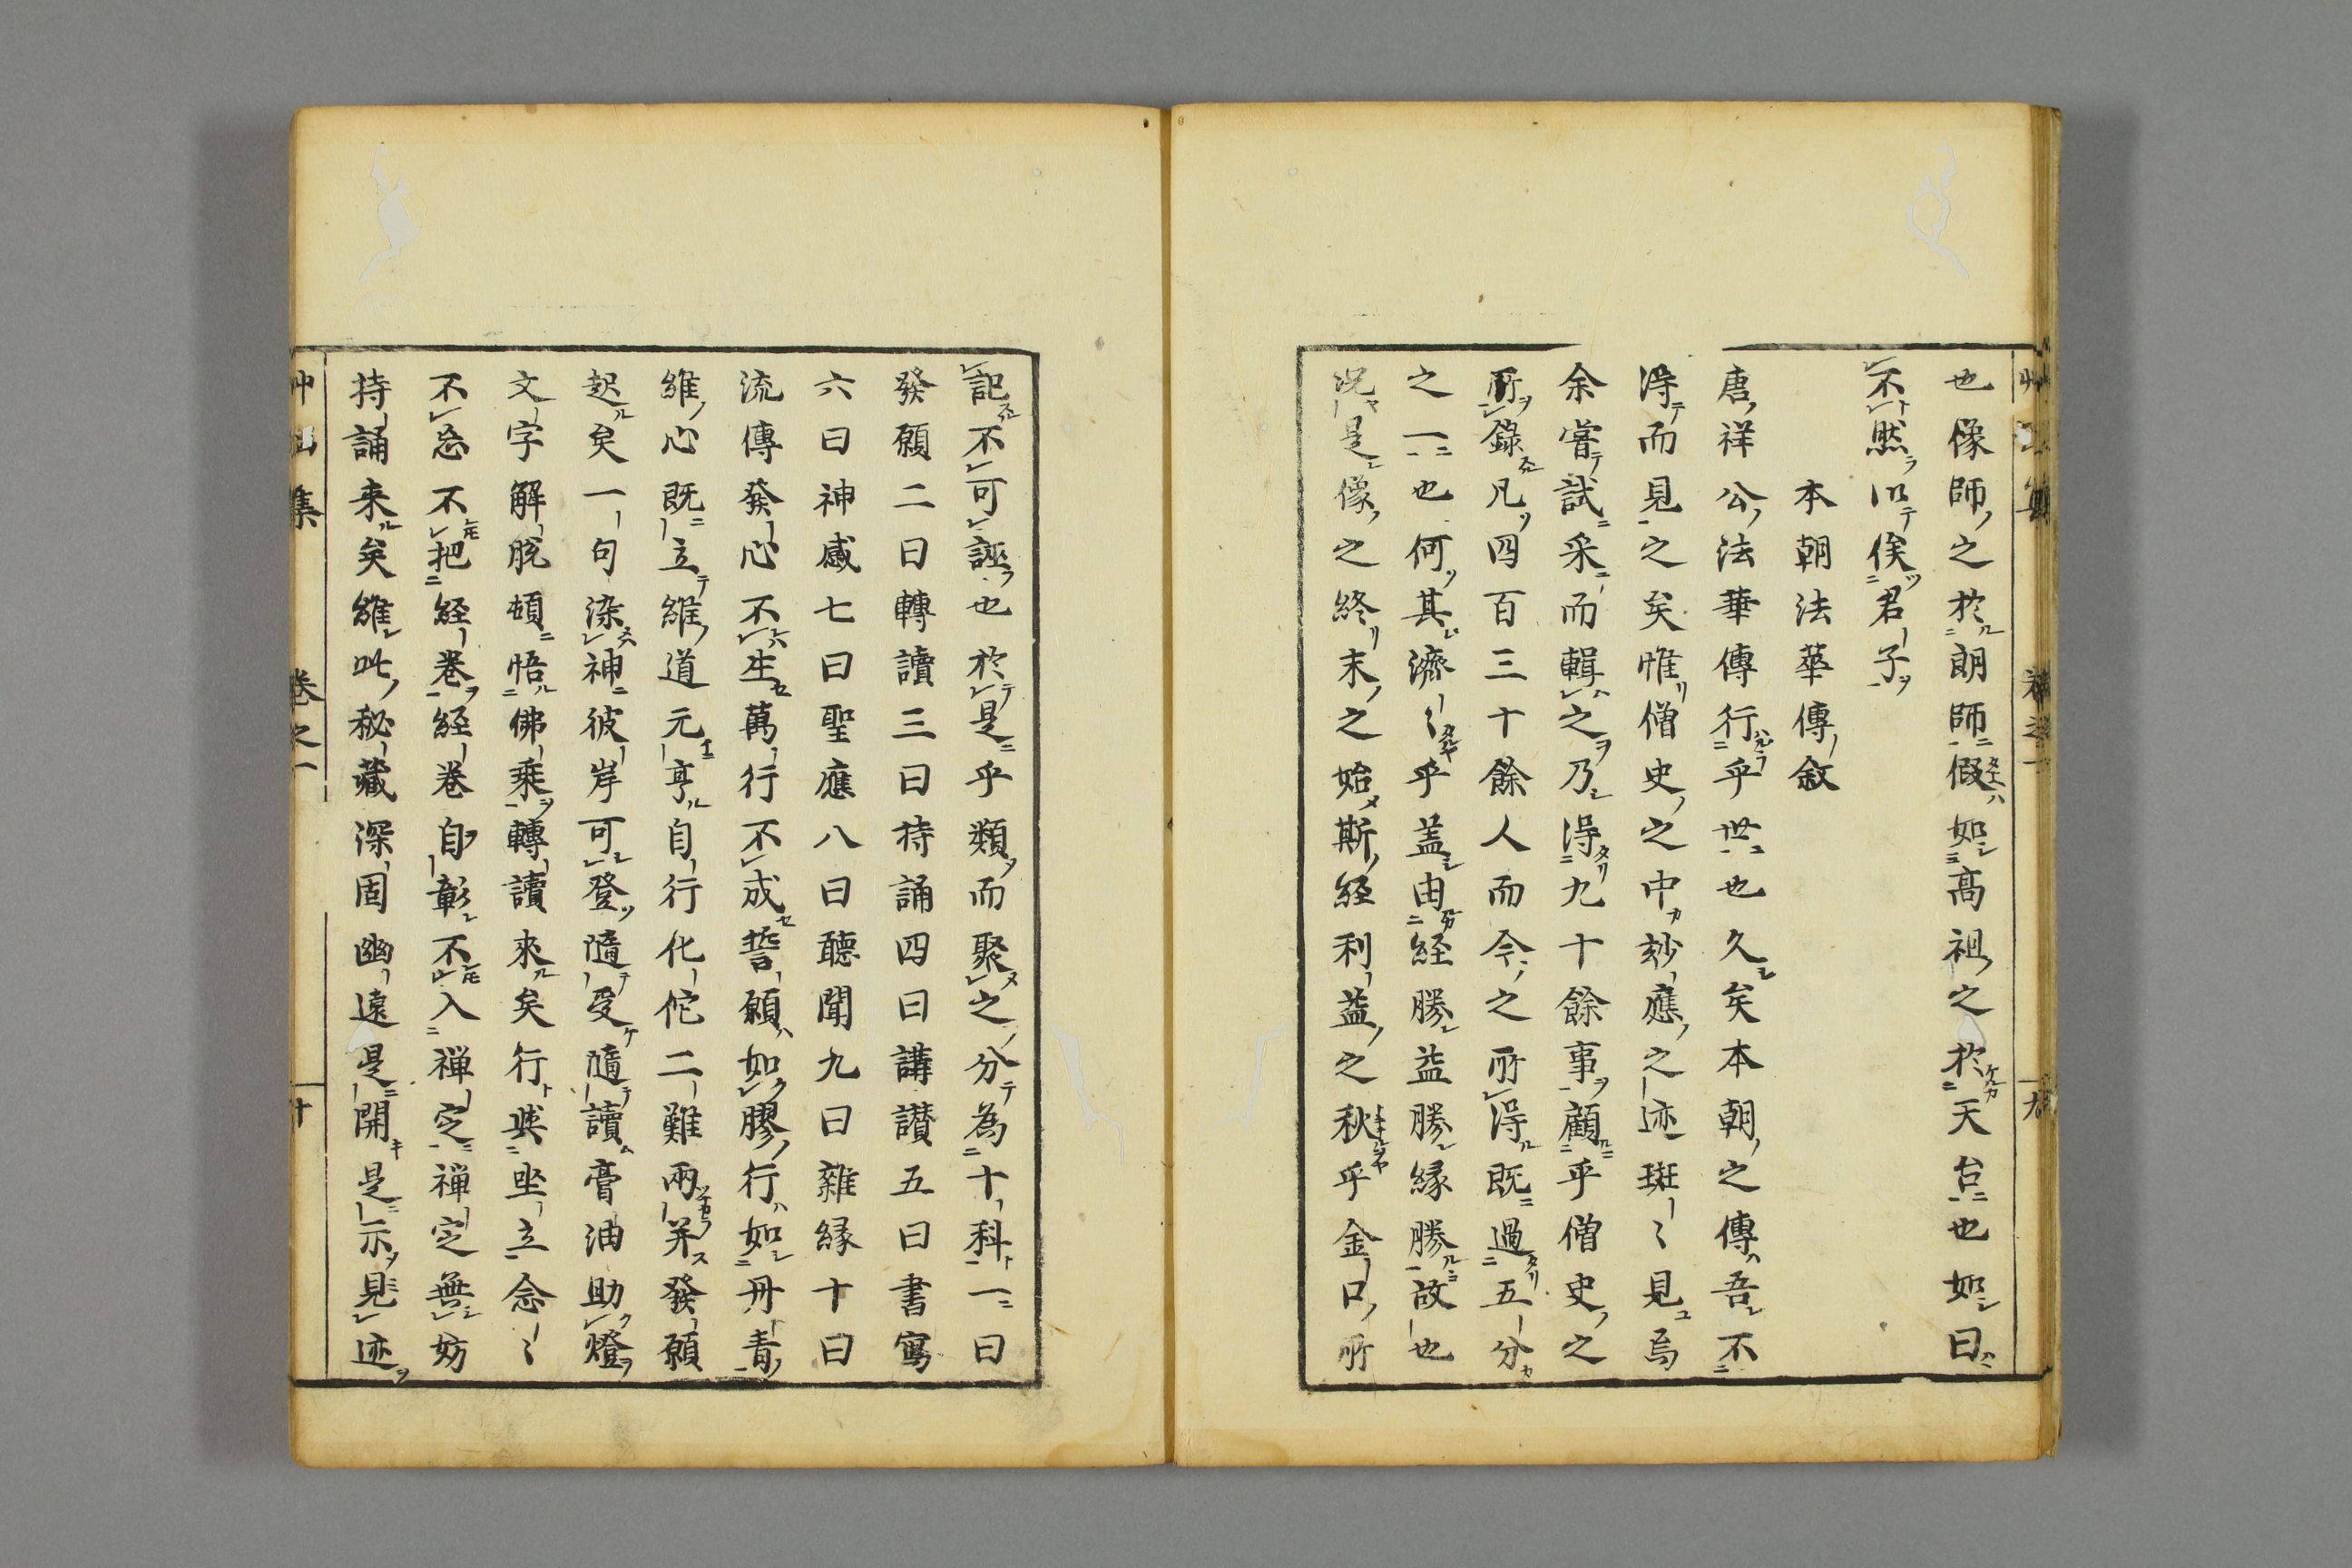 也像師之於朗師假如高祖之於天台也如曰
不然以俟君子
本朝法華傳敘
唐祥公法華傳行乎世也久矣本朝之傳吾不
得而見之矣惟僧史之中玅應之迹斑〻見焉
余嘗試采而輯之乃得九十餘事顧乎僧史之
所錄凡四百三十餘人而今之所得既過五分
之一也何其濟〻乎盖由経勝益勝縁勝故也
況是像之終末之始斯経利益之秋乎金口所
記不可誣也於是乎類而聚之分為十科一曰
發願二曰轉讀三曰持誦四曰講讃五曰書寫
六曰神感七曰聖應八曰聽聞九曰雜縁十曰
流傳發心不生萬行不成誓願如膠行如丹青
維心既立維道元亨自行化佗二難兩并發願
起矣一句染神彼岸可登隨受隨讀膏油助燈
文字解脱頓悟佛乘轉讀來矣行與坐立念〻
不忘不把経巻経巻自彰不入禅定禅定無妨
持誦来矣維此秘藏深固幽遠是開是示見迹
艸山集 卷之一 十